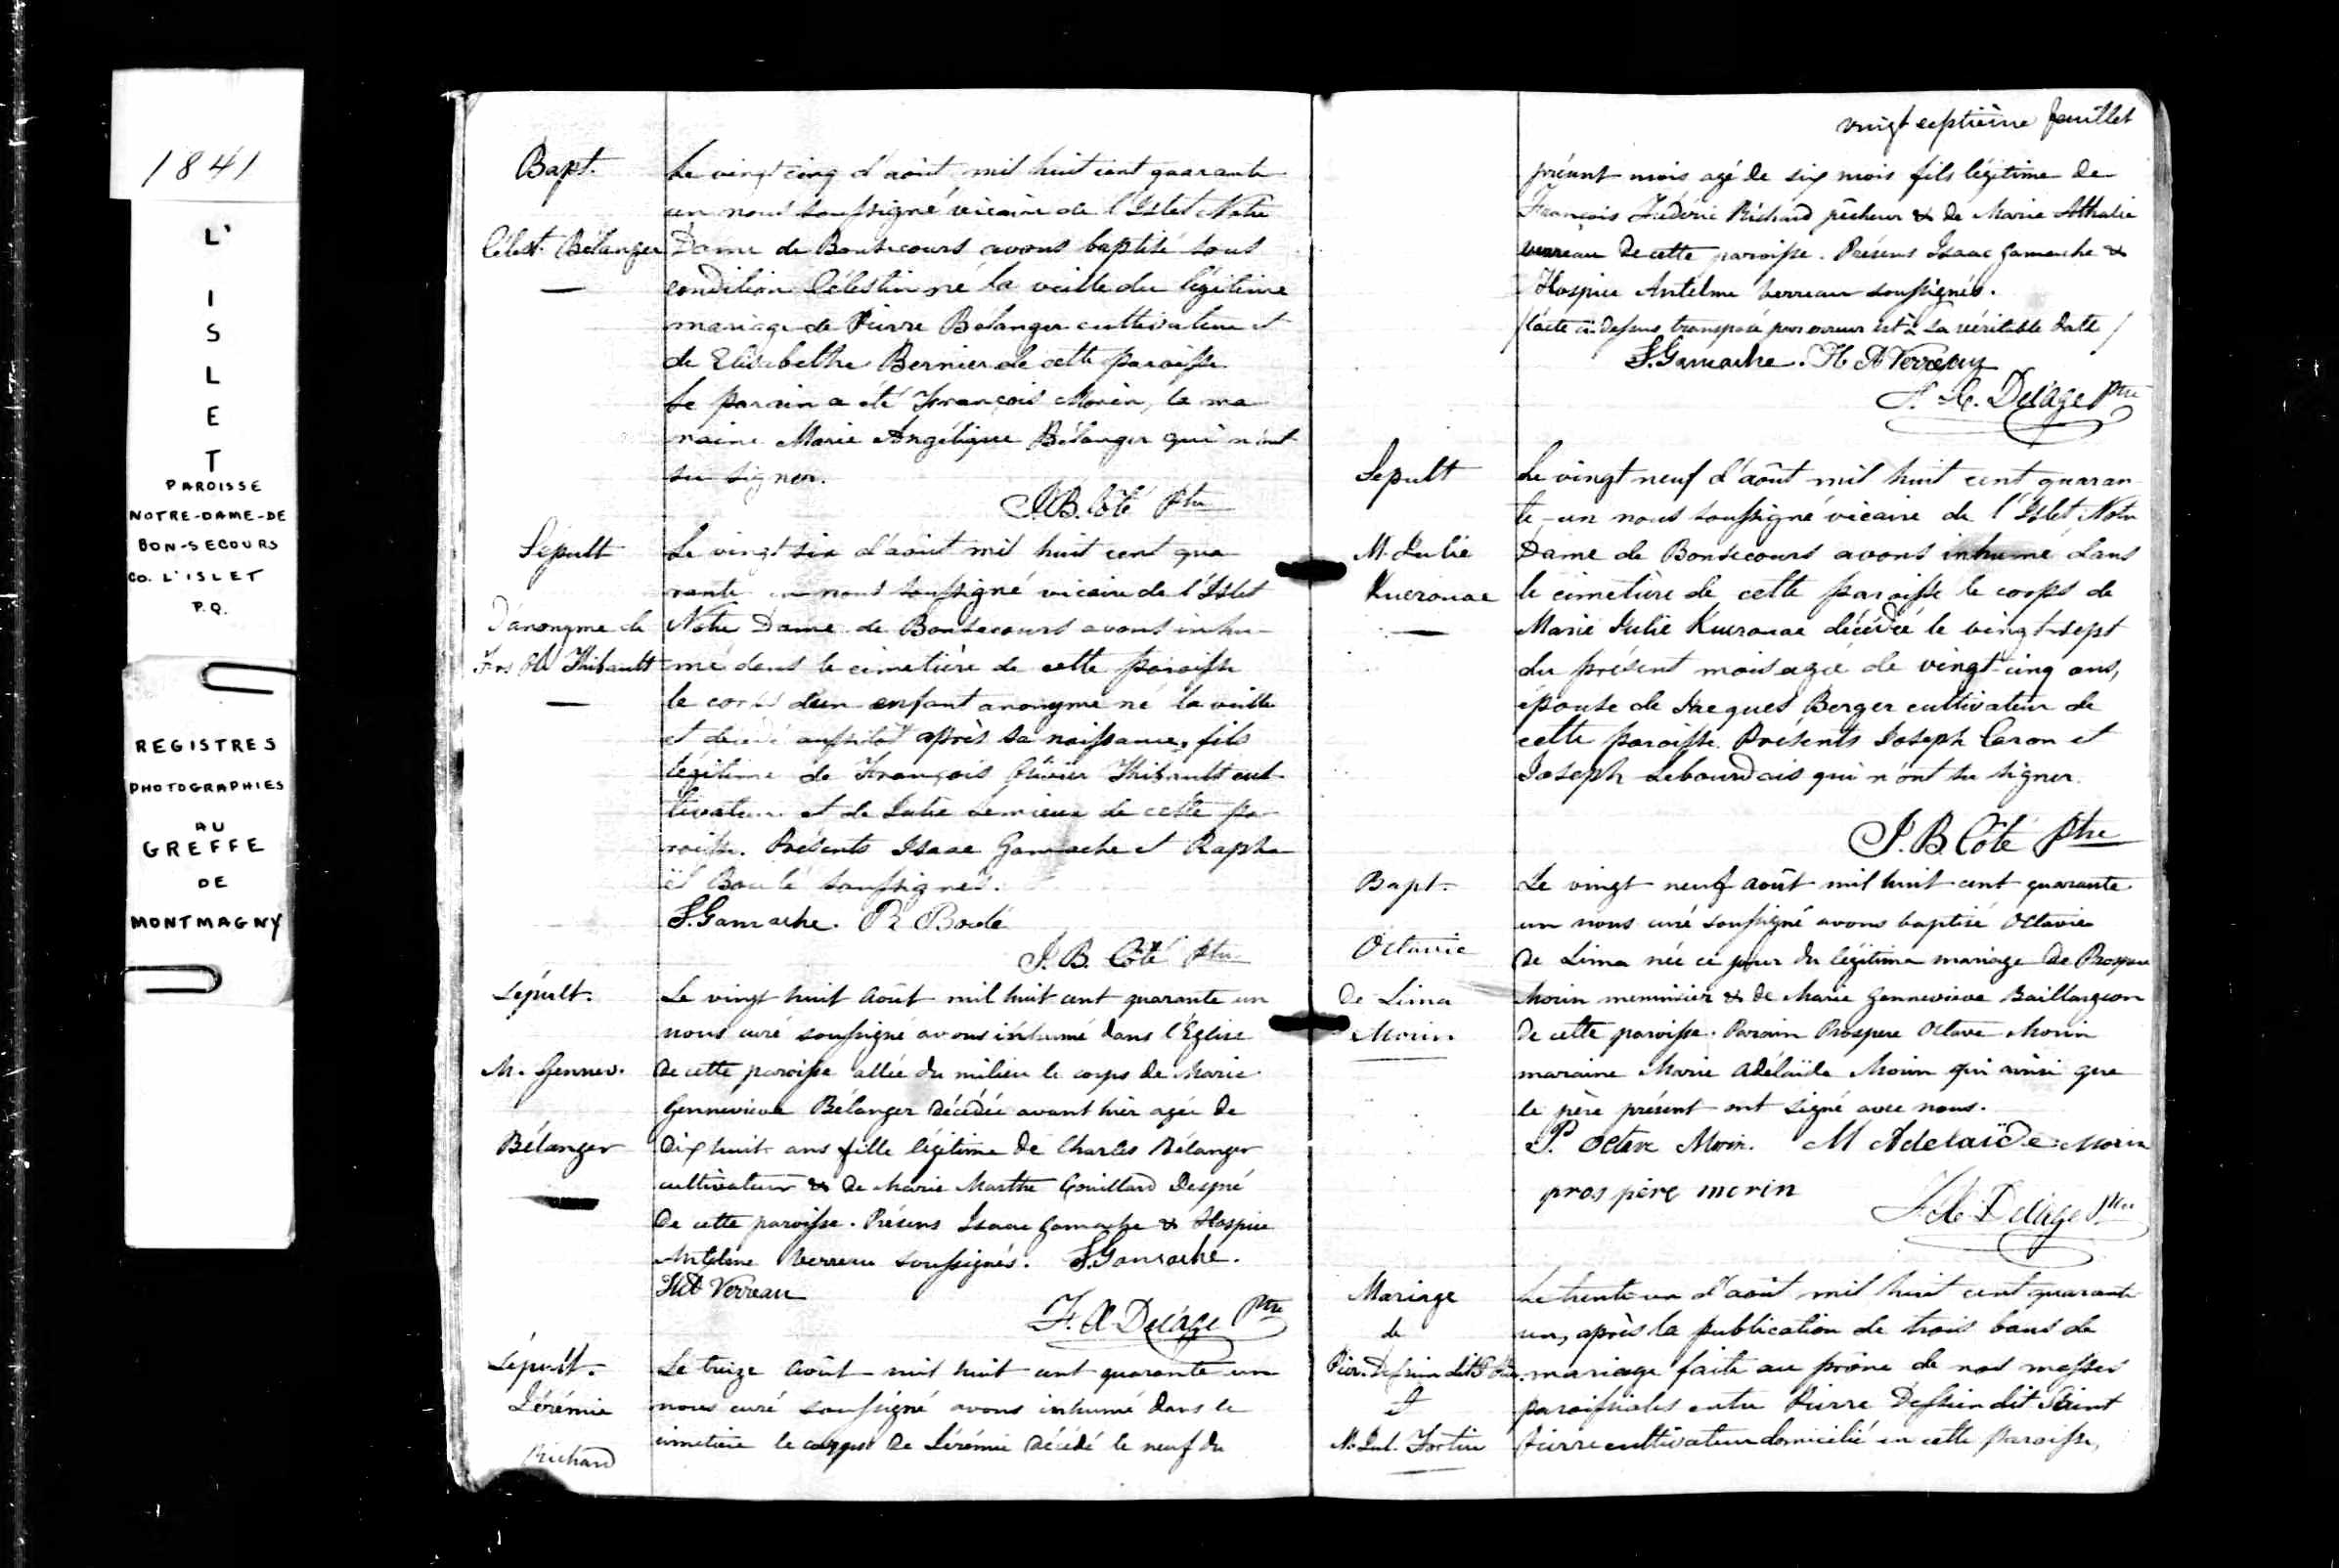 1841
L'
I
S
L
E
T
PAROISSE
NOTRE-DAME-DE
BON-SECOURS
CO. L'ISLET
P.Q.
REGISTRES
PHOTOGRAPHIES
AU
GREFFE
DE
MONTMAGNY
Bapt.
Célest. Bélanger
Le vingt cinq d'août mil huit cent quarante
un nous soussigné vicaire de l'Islet Notre
Dame de Bonsecours avons baptisé sous
condition Célestin né la veille du légitime
mariage de Pierre Bélanger cultivateur et
de Elisabethe Bernier de cette paroisse
Le parain a été François Morin, la ma
raine Marie Angélique Bélanger qui n'ont
su signer.
J.B. Côté Ptre
Sépult
D'anonyme de
Frs Ol. Thibault
Le vingt six d'août mil huit cent qua
rante un nous soussigné vicaire de l'Islet
Notre Dame de Bonsecours avons inhu-
mé dans le cimetière de cette paroisse
le corps d'un enfant anonyme né la veille
et décédé aussitôt après sa naissance, fils
légitime de François Olivier Thibault cul-
tivateur et de Julie Lemieux de cette pa
roisse. Présents Isaac Gamache et Rapha
ël Boulé soussignés.
I. Gamache. R Boulé
J.B. Côté Ptre
Sépult.
M. Gennev.
Bélanger
Le vingt huit août mil huit cent quarante un
nous curé soussigné avons inhumé dans l'Eglise
de cette paroisse allée du milieu le corps de Marie
Gennevieve Bélanger décédée avant hier agée de
dix huit ans fille légitime de Charles Bélanger
cultivateur & de Marie Marthe Gouillard Despré
de cette paroisse. Présens Isaac Gamache & Hospice
Antelme Verreau soussignés. I. Gamache.
H A Verreau
F. X. Delâge Ptre
Sépult.
Jérémie
Richard
Le treize août mil huit cent quarante un
nous curé soussigné avons inhumé dans le
cimetière le corps de Jérémie décédé le neuf du
vingt septième feuillet
présent mois agé de six mois fils légitime de
François Fréderic Richard pêcheur & de Marie Athalie
verreau de cette paroisse. Présens Isaac Gamache &
Hospice Antelme Verreau soussignés.
/ l'acte ci-dessus transposé par erreur est à sa véritable date /
I. Gamache. H A Verreau
F. X. Delâge Ptre
Sepult
M. Julie
Kuerouac
Le vingt neuf d'août mil huit cent quaran-
te-un nous soussigné vicaire de l'Islet Notre
Dame de Bonsecours avons inhumé dans
le cimetière de cette paroisse le corps de
Marie Julie Kuerouac décédée le vingt-sept
du présent mois agée de vingt-cinq ans,
épouse de Jacques Berger cultivateur de
cette paroisse. Présents Joseph Caron et
Joseph Lebourdais qui n'ont su signer.
J.B. Côté Ptre
Bapt.
Octavie
de Lima
Morin
Le vingt neuf août mil huit cent quarante
un nous curé soussigné avons baptisé Octavie
de Lima née ce jour du légitime mariage de Prosper
Morin menuisier & de Marie Gennevieve Baillargeon
de cette paroisse. Parain Prospere Octave Morin
maraine Marie Adélaïde Morin qui ainsi que
le père présent ont signé avec nous.
P. Octave Morin. M Adelaïde Morin
prospère morin
F. X. Delâge Ptre
Mariage
de
Pier. Dessein dit St Pier.
et
M. Jul. Fortin
Le trente un d'août mil huit cent quarante
un, après la publication de trois bans de
mariage faite au prône de nos messes
paroissiales entre Pierre Dessein dit Saint
Pierre cultivateur domicilié en cette paroisse,